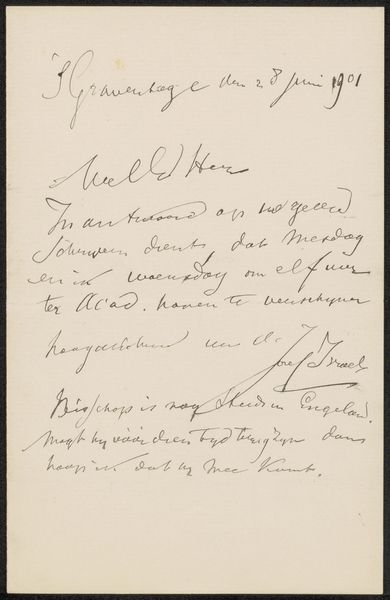 's Gravenhage den 28 juni 1901
Wel Ed Heer
In antwoord op uw geëerd
schrijven dient dat Mesdag
en ik woensdag om elf uur
ter Acad. hopen te verschijnen
hoogachtend uw d.
Jozef Israels
Bisschop is nog steeds in Engeland
mogt hij vóór dien tyd terug zyn dan
hoop ik dat hy mee komt.